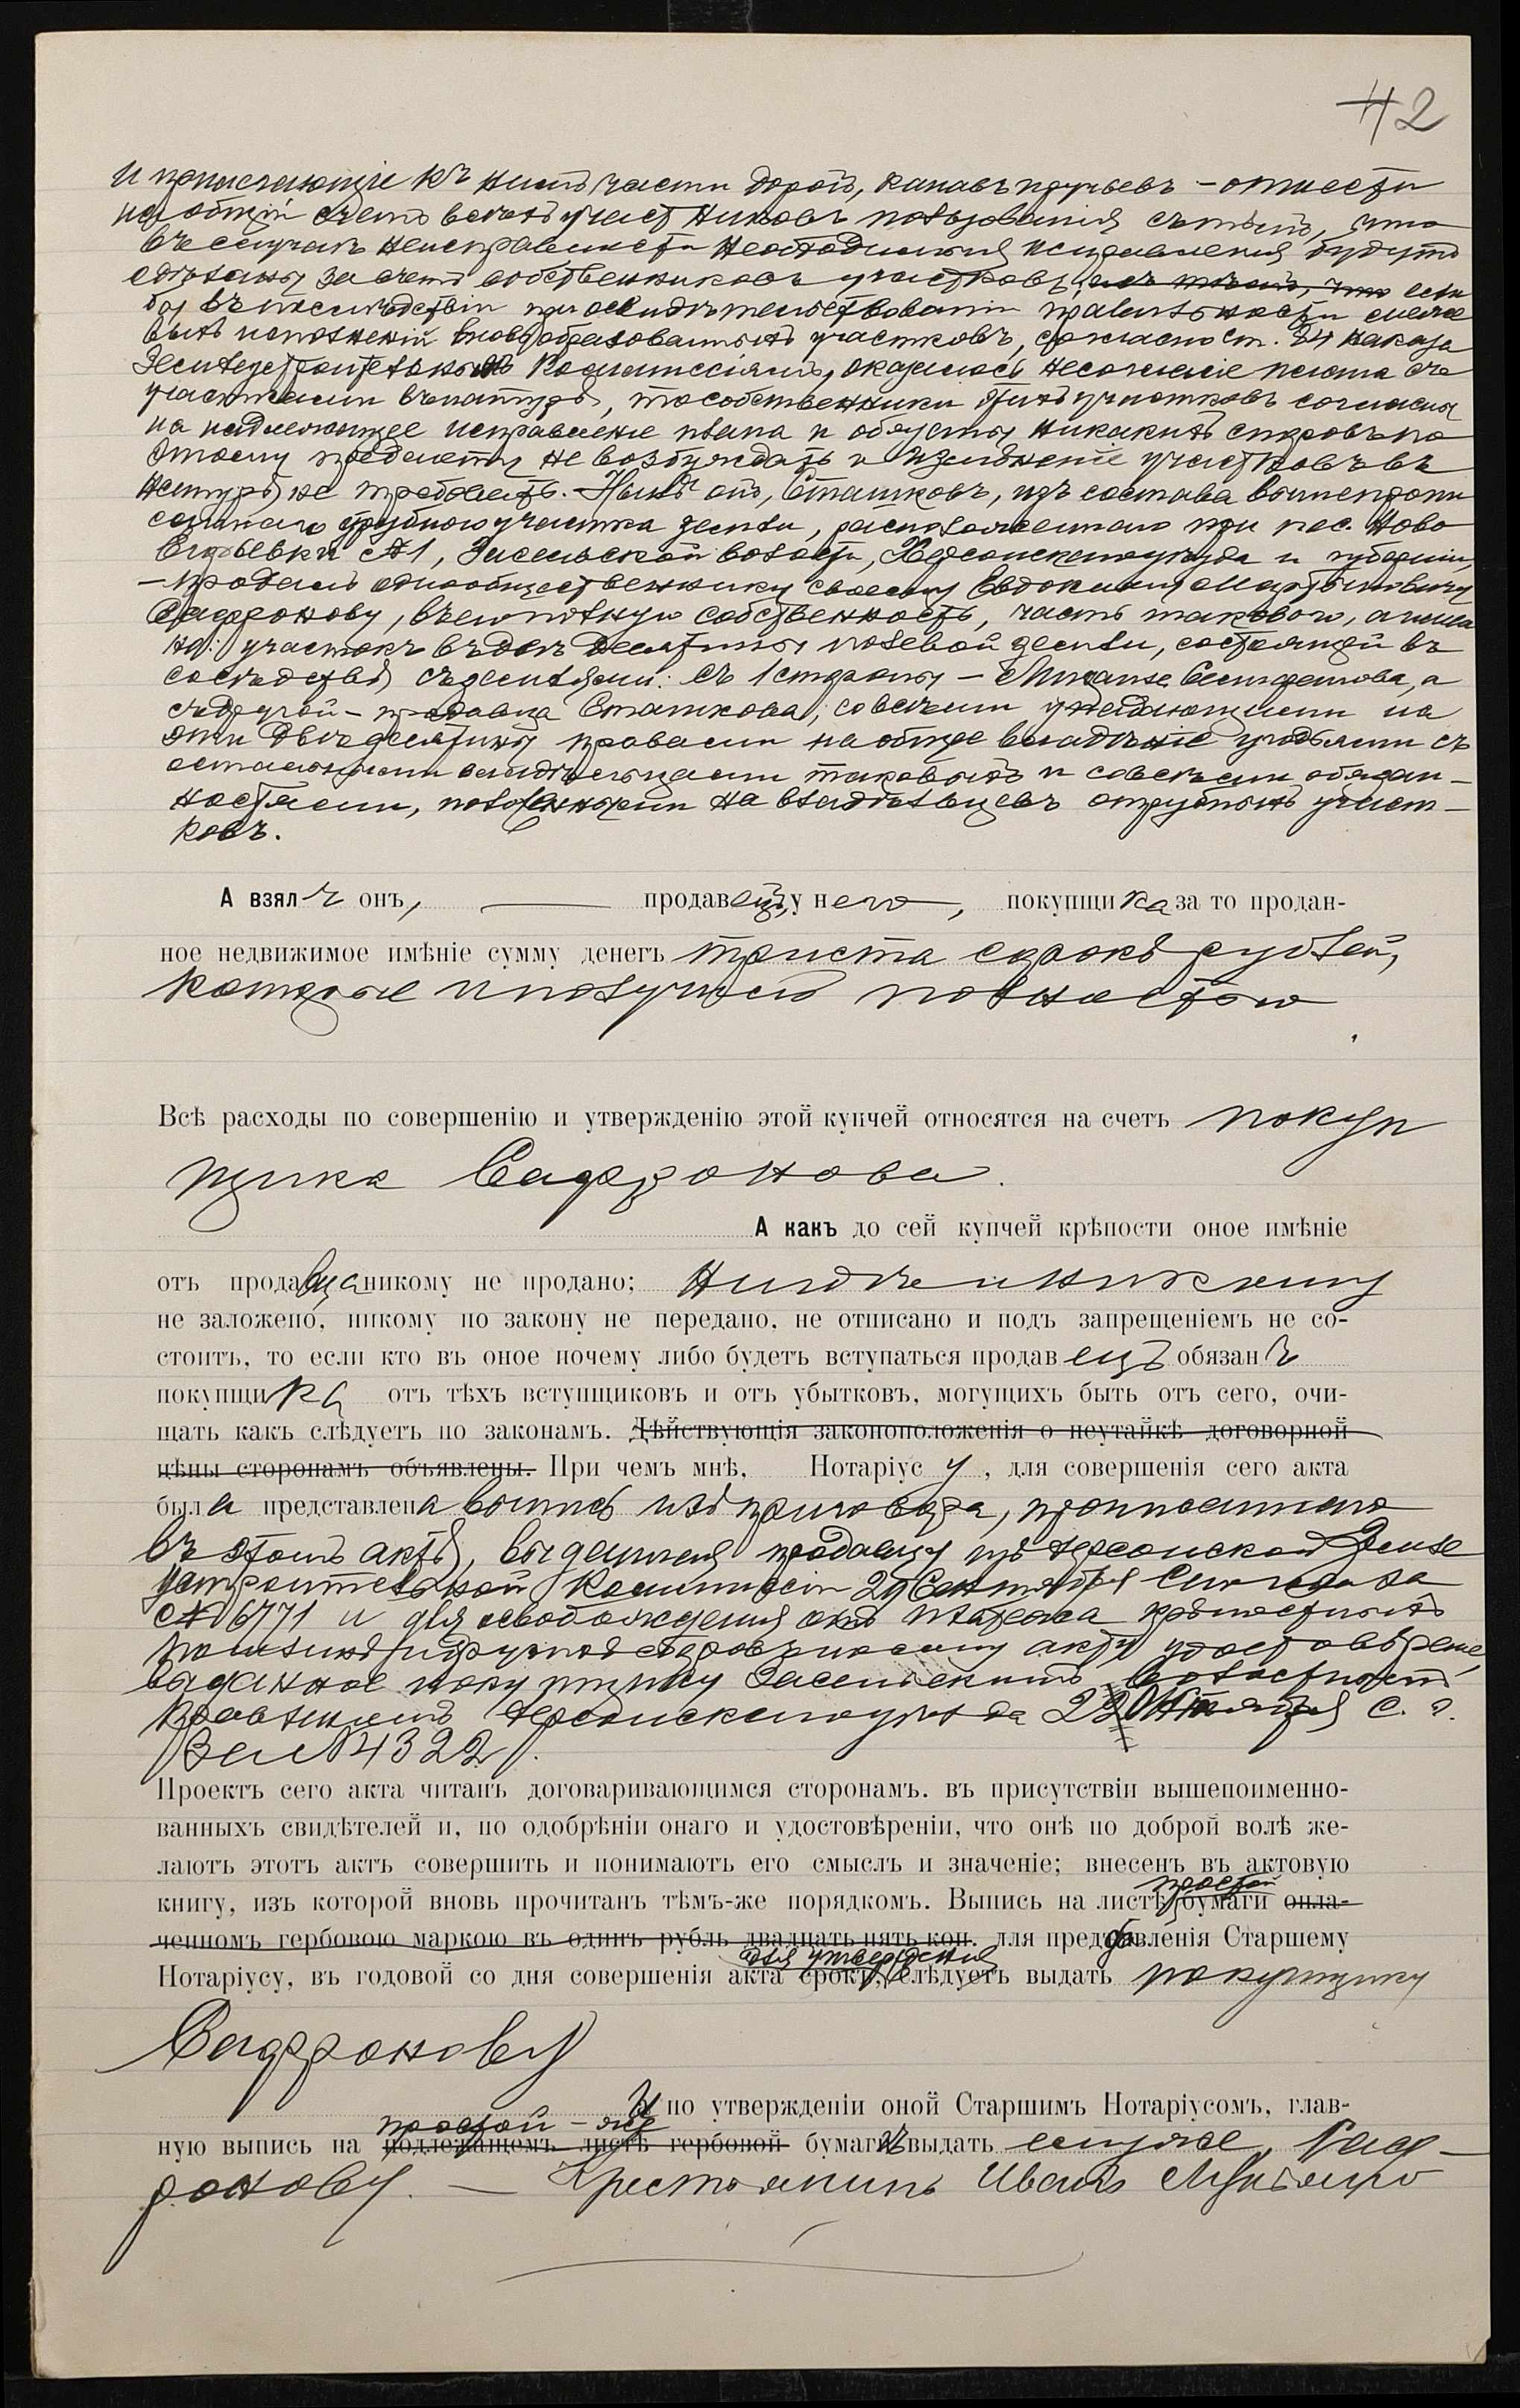 42
и прилегающіе къ нимъ части дорогъ, канавъ — отнести
на общій счетъ всѣхъ участниковъ пользованія съ тѣмъ, что
въ случаѣ неисправности необходимыя исправленія будутъ
сдѣланы за счетъ собственниковъ участковъ, и съ тѣмъ, что если
бы въ послѣдствіи при освидѣтельствованіи правильности
вновь образованныхъ участковъ, согласно ст. 24 наказа
Землеустроительнымъ Коммиссіямъ, оказалось несогласіе плана съ
участками въ натурѣ, то собственники этихъ участковъ согласны
на надлежащее исправленіе плана и обязуются никакихъ споровъ по
этому предмету не возбуждать и измѣненіе участковъ въ
натурѣ не требовать. Нынѣ онъ, Сташковъ, изъ состава вышепропи
саннаго отрубного участка земли, расположеннаго при пос. Ново
Егорьевкѣ №1, Засельской волости, Херсонскаго уѣзда и губерніи,
— продалъ однообщественнику своему Евдокиму Мартыновичу
Сафронову, въ его полную собственность, часть таковаго, а имен
но: участокъ въ двѣ десятины полевой земли, состоящей въ
сосѣдствѣ съ землями: съ 1 стороны — а
съ другой — продавца Сташкова, со всѣми упадающими на
эти двѣ десятины правами на общее владѣніе угодьями съ
остальными владѣльцами таковыхъ и со всѣми обязан—
ностями, положенными на владѣльцевъ отрубныхъ участ—
ковъ.
А взялъ онъ, продавецъ, у него, покупщика за то продан-
ное недвижимое имѣніе сумму денегъ триста сорокъ рублей,
которые и получилъ полностью
Всѣ расходы по совершенію и утвержденію этой купчей относятся на счетъ покуп
щика Сафронова.
А какъ до сей купчей крѣпости оное имѣніе
отъ продавца никому не продано; нигдѣ и никому
не заложено, никому по закону не передано, не отписано и подъ запрещеніемъ не со-
стоитъ, то если кто въ оное почему либо будетъ вступаться продавецъ обязанъ
покупщика отъ тѣхъ вступщиковъ и отъ убытковъ, могущихъ быть отъ сего, очи-
щать какъ слѣдуетъ по законамъ. Дѣйствующія законоположенія о неутайкѣ договорной
цѣны сторонамъ объявлены. При чемъ мнѣ, Нотаріусу, для совершенія сего акта
была представлена выпись изъ приговора, прописаннаго
въ этомъ актѣ, выданная продавцу изъ Херсонской Земле
устроительной Коммиссіи 29 Сентября сего года за
№ 6771 и для освобожденія отъ платежа крѣпостныхъ
пошлинъ по сему акту удостовѣреніе,
выданное покупщику Засельскимъ Волостнымъ
Правленіемъ Херсонскаго уѣзда 22 Октября с. г.
за № 4322.
Проектъ сего акта читанъ договаривающимся сторонамъ. въ присутствіи вышепоименно-
ванныхъ свидѣтелей и, по одобрѣніи онаго и удостовѣреніи, что онѣ по доброй волѣ же-
лаютъ этотъ актъ совершить и понимаютъ его смыслъ и значеніе; внесенъ въ актовую
книгу, изъ которой вновь прочитанъ тѣмъ-же порядкомъ. Выпись на листѣ простой бумаги опла-
ченномъ гербовою маркою въ одинъ рубль двадцать пять коп. для представленія Старшему
Нотаріусу, въ годовой со дня совершенія акта срокъ, для утвержденія слѣдуетъ выдать покупщику
Сафронову
и по утвержденіи оной Старшимъ Нотаріусомъ, глав-
ную выпись на простой-же подлежащемъ листѣ гербовой бумагѣ выдать ему же, Саф—
ронову. — Крестьянинъ Иванъ